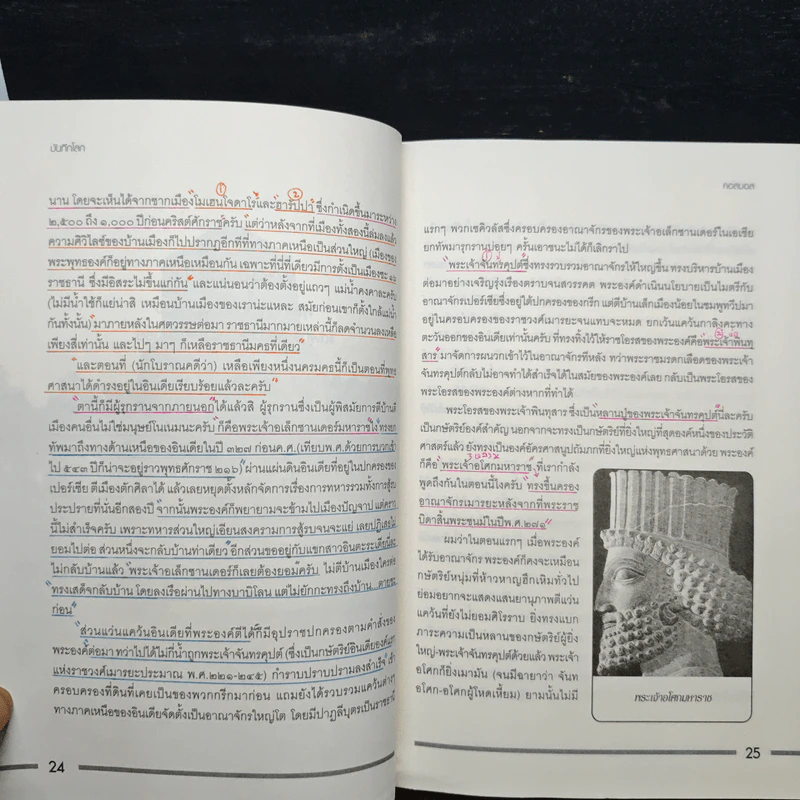 บันทึกโลก
① ②
นาน โดยจะเห็นได้จากซากเมือง"โมเฮนโจดาโร"และ"ฮารัปปา" ซึ่งกำเนิดขึ้นมาระหว่าง
๒,๕๐๐ ถึง ๑,๐๐๐ ปีก่อนคริสต์ศักราชครับ แต่ว่าหลังจากที่เมืองทั้งสองนี้ล่มลงแล้ว
ความศิวิไลซ์ของบ้านเมืองก็ไปปรากฏอีกทีที่ทางภาคเหนือเป็นส่วนใหญ่ (เมืองของ
พระพุทธองค์ก็อยู่ทางภาคเหนือเหมือนกัน เฉพาะที่นี่ที่เดียวมีการตั้งเป็นเมืองซะ ๑๖
ราชธานี ซึ่งมีอิสระไม่ขึ้นแก่กัน" และแน่นอนว่าต้องตั้งอยู่แถวๆ แม่น้ำคงคาละครับ
(ไม่มีน้ำใช้ก็แย่น่าสิ เหมือนบ้านเมืองของเราน่ะแหละ สมัยก่อนเขาก็ตั้งใกล้แม่น้ำ
กันทั้งนั้น) "มาภายหลังในศตวรรษต่อมา ราชธานีมากมายเหล่านี้ก็ลดจำนวนลงเหลือ
เพียงสี่เท่านั้น และไปๆ มาๆ ก็เหลือราชธานีมคธที่เดียว"
"และตอนที่ (นักโบราณคดีว่า) เหลือเพียงหนึ่งนครมคธนี้ก็เป็นตอนที่พุทธ
ศาสนาได้ดำรงอยู่ในอินเดียเรียบร้อยแล้วละครับ"
"ตานี้ก็มีผู้รุกรานจากภายนอก"ได้แล้วสิ ผู้รุกรานซึ่งเป็นผู้พิสมัยการตีบ้านตี
เมืองคนอื่นไม่ใช่มนุษย์ในเมนนะครับ "ก็คือพระเจ้าอเล็กซานเดอร์มหาราชไง ทรงยก
ทัพมาถึงทางด้านเหนือของอินเดียในปี ๓๒๗ ก่อนค.ศ.(เทียบพ.ศ.ด้วยการบวกเข้า
ไป ๕๔๓ ปีก็น่าจะอยู่ราวพุทธศักราช ๒๑๖)"ผ่านแผ่นดินอินเดียที่อยู่ในปกครองของ
เปอร์เซีย ตีเมืองตักศิลาได้ แล้วเลยหยุดตั้งหลักจัดการเรื่องการทหารรวมทั้งการสู้รบ
ประปรายที่นั่นอีกสองปี "จากนั้นพระองค์ก็พยายามจะข้ามไปเมืองปัญจาป แต่คราว
นี้ไม่สำเร็จครับ เพราะทหารส่วนใหญ่เอียนสงครามการสู้รบจนจะแย่ เลยปฏิเสธไม่
ยอมไปต่อ ส่วนหนึ่งจะกลับบ้านท่าเดียว" อีกส่วนขออยู่กับแขกสาวอินตะระเดียนี่ละ
ไม่กลับบ้านแล้ว "พระเจ้าอเล็กซานเดอร์ก็เลยต้องยอมครับ ไม่ตีบ้านเมืองใครต่อ
"ทรงเสด็จกลับบ้าน โดยลงเรือผ่านไปทางบาบิโลน แต่ไม่ยักกะทรงถึงบ้าน ตายซะ
ก่อน"
"ส่วนแว่นแคว้นอินเดียที่พระองค์ตีได้ก็มีอุปราชปกครองตามคำสั่งของ
พระองค์ต่อมา ทว่าไปได้ไม่กี่น้ำถูกพระเจ้าจันทรคุปต์ (ซึ่งเป็นกษัตริย์อินเดียองค์แรก
แห่งราชวงศ์เมารยะประมาณ พ.ศ.๒๒๑-๒๔๕) กำราบปราบปรามลงสำเร็จ" เข้า
ครอบครองที่ดินที่เคยเป็นของพวกกรีกมาก่อน แถมยังได้รวบรวมแคว้นต่างๆ
ทางภาคเหนือของอินเดียจัดตั้งเป็นอาณาจักรใหญ่โต โดยมีปาฏลีบุตรเป็นราชธานี
24
คอสมอส
แรกๆ พวกเซคิวลัสซึ่งครอบครองอาณาจักรของพระเจ้าอเล็กซานเดอร์ในเอเซีย
ยกทัพมารุกรานบ่อยๆ ครั้นเอาชนะไม่ได้ก็เลิกราไป
①
"พระเจ้าจันทรคุปต์ซึ่งทรงรวบรวมอาณาจักรให้ใหญ่ขึ้น ทรงบริหารบ้านเมือง
ต่อมาอย่างเจริญรุ่งเรืองตราบจนสวรรคต พระองค์ดำเนินนโยบายเป็นไมตรีกับ
อาณาจักรเปอร์เซียซึ่งอยู่ใต้ปกครองของกรีก แต่ตีบ้านเล็กเมืองน้อยในชมพูทวีปมา
อยู่ในครอบครองของราชวงศ์เมารยะจนแทบจะหมด ยกเว้นแคว้นกาลิงคะทาง
ตะวันออกของอินเดียเท่านั้นครับ ที่ทรงทิ้งไว้ให้ราชโอรสของพระองค์คือ"พระเจ้าพินทุ
สาร" มาจัดการผนวกเข้าไว้ในอาณาจักรทีหลัง ทว่าพระราชมรดกเลือดของพระเจ้า
จันทรคุปต์กลับไม่อาจทำได้สำเร็จได้ในสมัยของพระองค์เลย กลับเป็นพระโอรสของ
พระโอรสของพระองค์ต่างหากที่ทำได้
พระโอรสของพระเจ้าพินทุสาร ซึ่งเป็น"หลานปู่ของพระเจ้าจันทรคุปต์"นี่ละครับ
เป็นกษัตริย์องค์สำคัญ นอกจากจะทรงเป็นกษัตริย์ที่ยิ่งใหญ่ที่สุดองค์หนึ่งของประวัติ
ศาสตร์แล้ว ยังทรงเป็นองค์อัครศาสนูปถัมภกที่ยิ่งใหญ่แห่งพุทธศาสนาด้วย พระองค์
ก็คือ "พระเจ้าอโศกมหาราช" ที่เรากำลัง
พูดถึงกันในตอนนี้ไงครับ "ทรงขึ้นครอง
อาณาจักรเมารยะหลังจากที่พระราช
บิดาสิ้นพระชนม์ในปีพ.ศ.๒๗๑"
ผมว่าในตอนแรกๆ เมื่อพระองค์
ได้รับอาณาจักร พระองค์ก็คงจะเหมือน
กษัตริย์หนุ่มที่ห้าวหาญฮึกเหิมทั่วไป
ย่อมอยากจะแสดงแสนยานุภาพตีแว่น
แคว้นที่ยังไม่ยอมศิโรราบ ยิ่งทรงแบก
ภาระความเป็นหลานของกษัตริย์ผู้ยิ่ง
ใหญ่-พระเจ้าจันทรคุปต์ด้วยแล้ว พระเจ้า
อโศกก็ยิ่งเมามัน (จนมีฉายาว่า จันท
อโศก-อโศกผู้โหดเหี้ยม) ยามนั้นไม่มี
พระเจ้าอโศกมหาราช
25